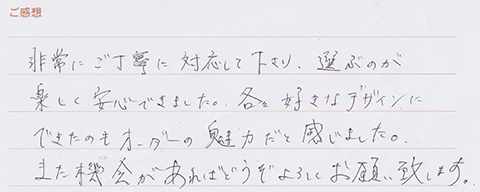 ご感想
非常にご丁寧に対応して下さり、選ぶのが
楽しく安心できました。各々好きなデザインに
できたのもオーダーの魅力だと感じました。
また機会があればどうぞよろしくお願い致します。